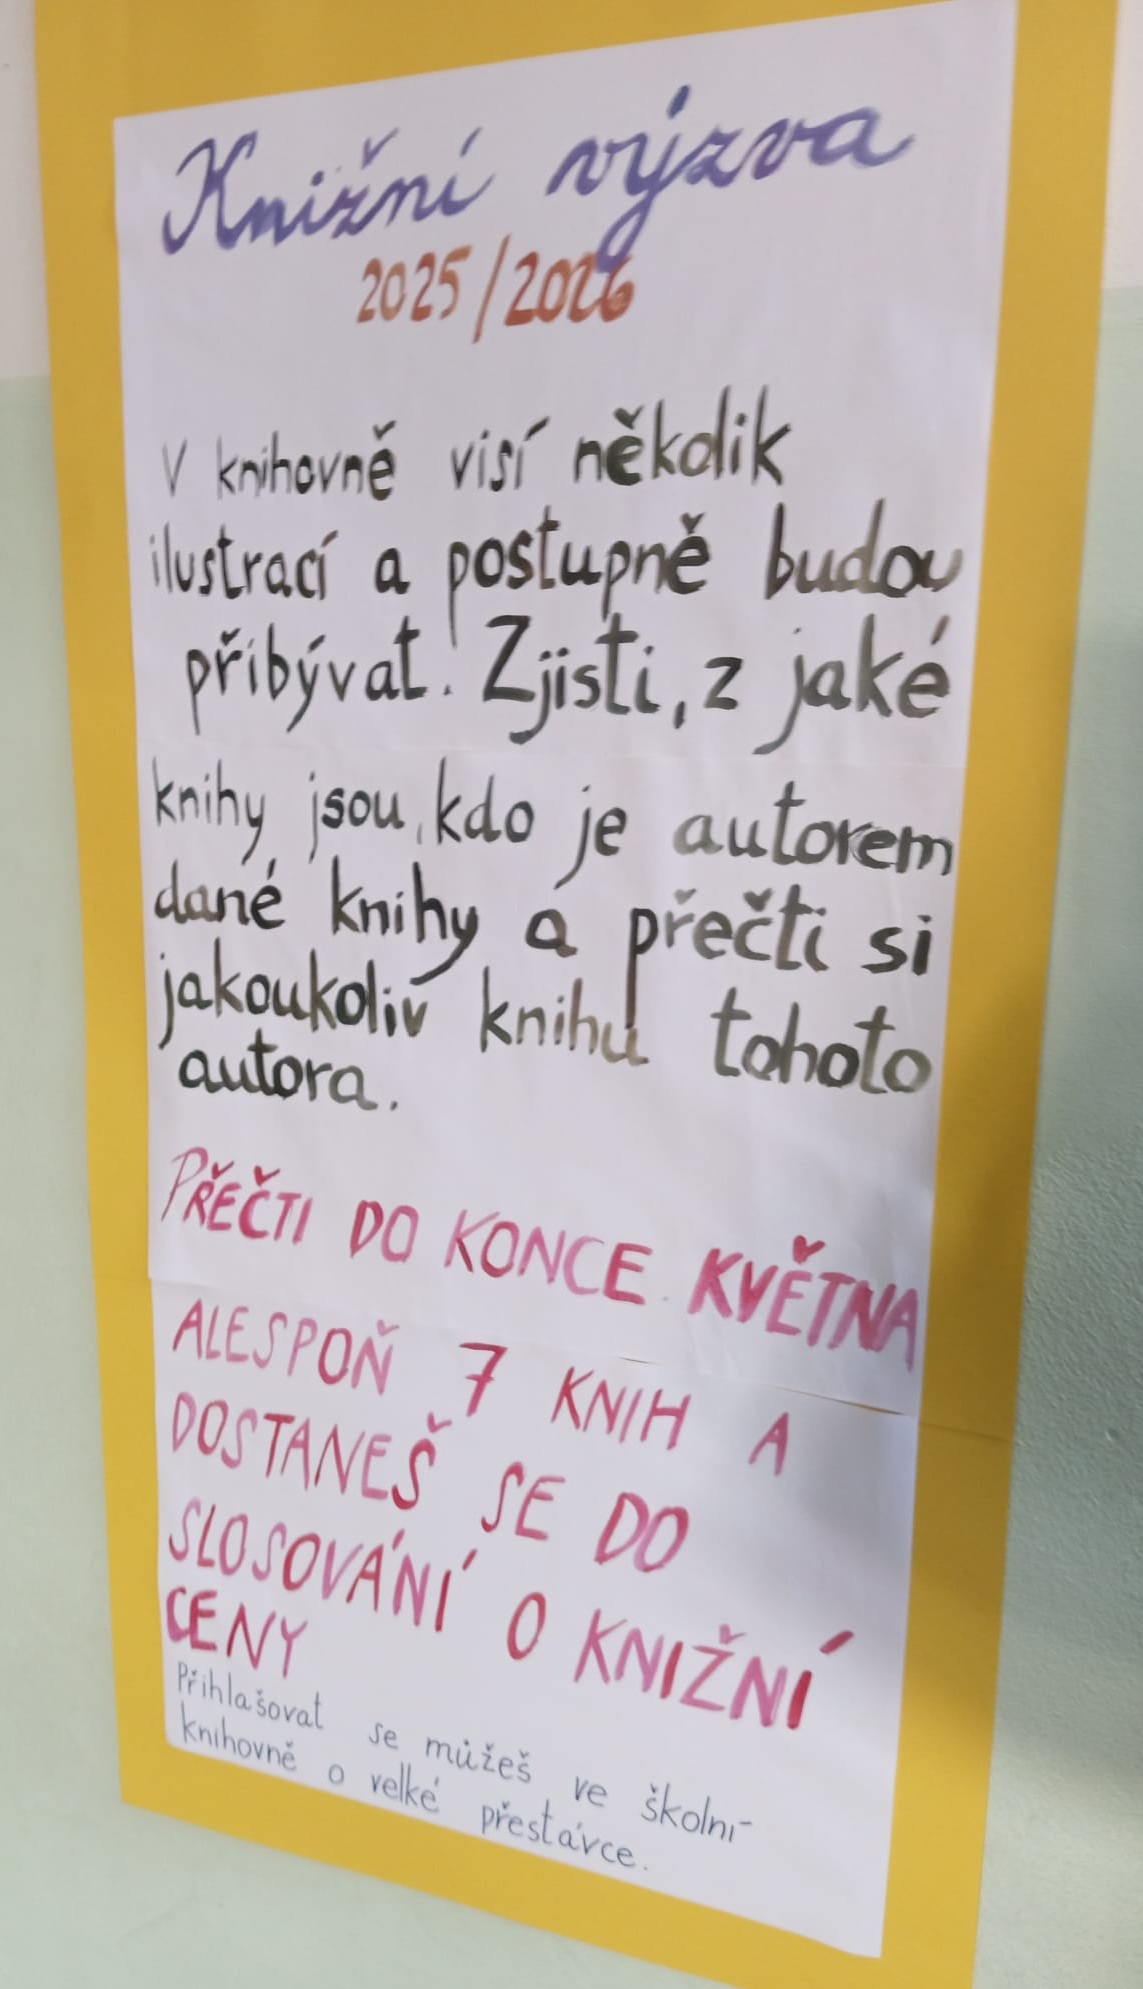 Knižní výzva
2025/2026
V knihovně visí několik
ilustrací a postupně budou
přibývat. Zjisti, z jaké
knihy jsou, kdo je autorem
dané knihy a přečti si
jakoukoliv knihu tohoto
autora.
PŘEČTI DO KONCE KVĚTNA
ALESPOŇ 7 KNIH A
DOSTANEŠ SE DO
SLOSOVÁNÍ O KNIŽNÍ
CENY
Přihlašovat se můžeš ve školní
knihovně o velké přestávce.